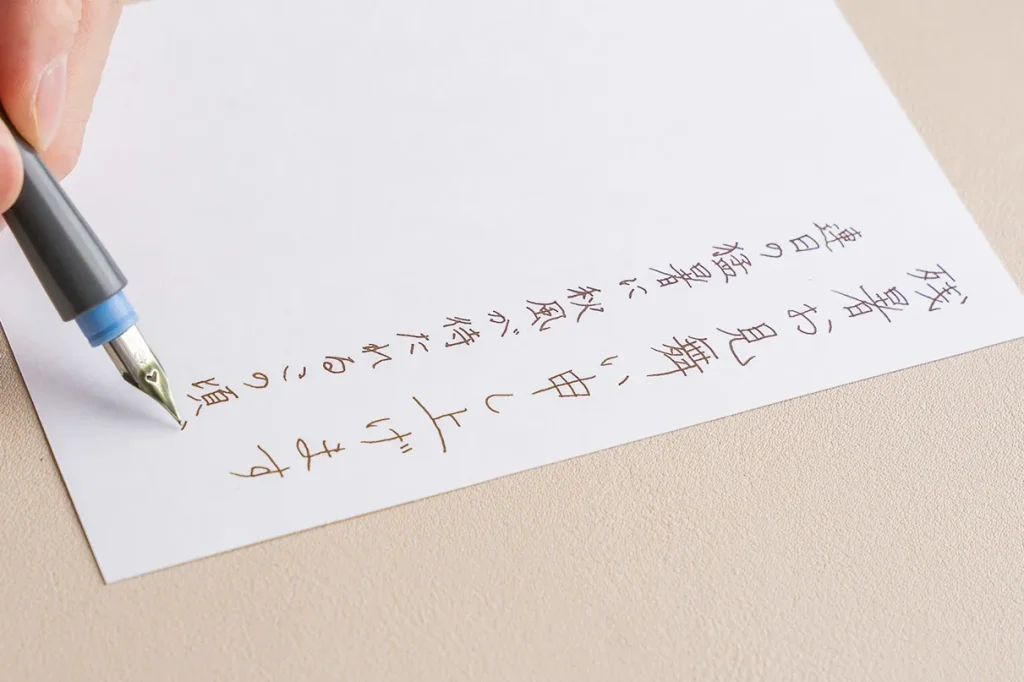 残暑お見舞い申し上げます
連日の猛暑に秋風が待たれるこの頃、